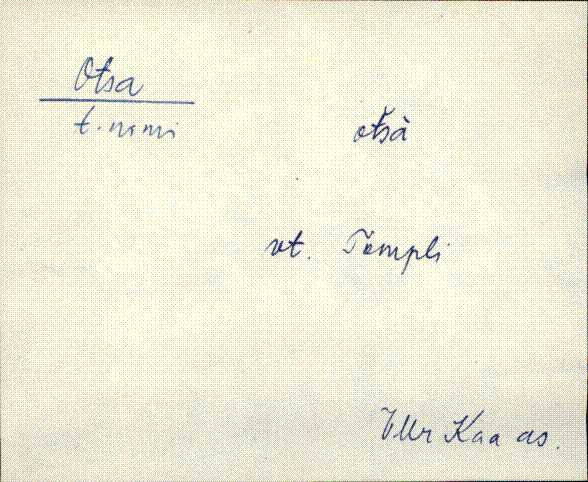 Otsa
t. nimi
otsà
vt. Templi
VMr Kaa as.